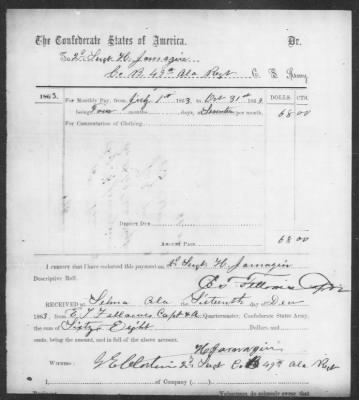 The Confederate States of America. Dr.
To 2d Sergt H. Jarnagin
Co B. 49th Ala Regt C. S. Army
1863. DOLLS. CTS.
For Monthly Pay, from July 1st 1863, to Oct 31st 1863
being four months days, at Seventeen per month. 68 00
For Commutation of Clothing.
DEDUCT DUE
AMOUNT PAID. 68 00
I CERTIFY that I have endorsed this payment on 2d Sergt H. Jarnagin
Descriptive Roll.
RECEIVED AT Selma Ala the Sixteenth day of Dec
1863, from E. T. Fellows Capt & A Quartermaster, Confederate States Army,
the sum of Sixty Eight Dollars and
cents, being the amount, and in full of the above account.
H Jarnagin
WITNESS: Sergt Co B 49th Ala Regt
of Company ( ).